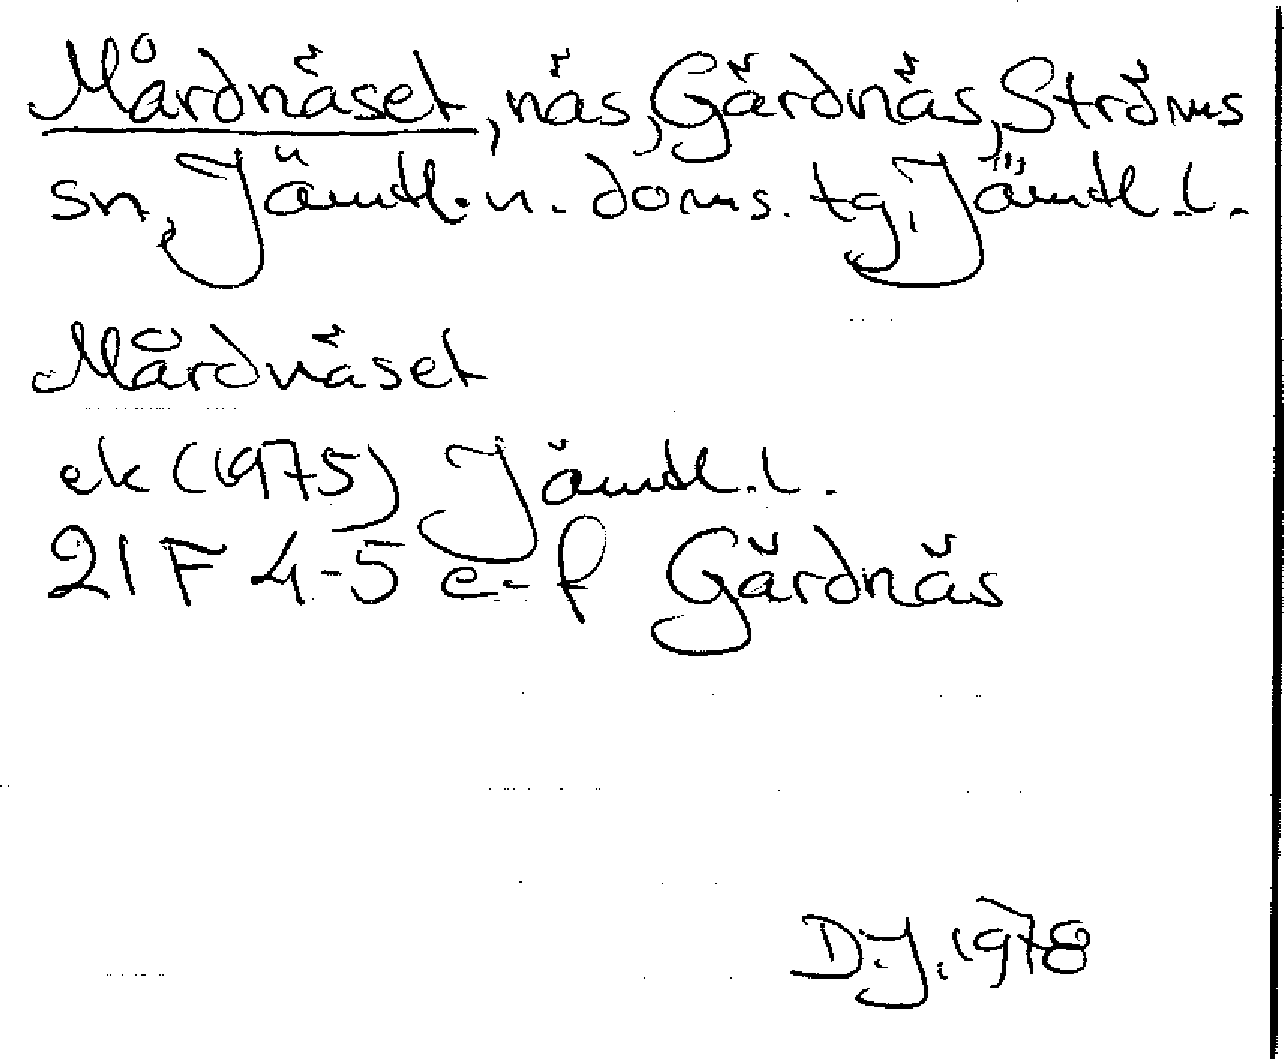 Mårdnäset, näs, Gärdnäs, Ströms
sn, Jämtl. n. doms. tg, Jämtl. l.
Mårdnäset
ek (1975) Jämtl. l.
21 F 4-5 e-f Gärdnäs
D.J. 1978